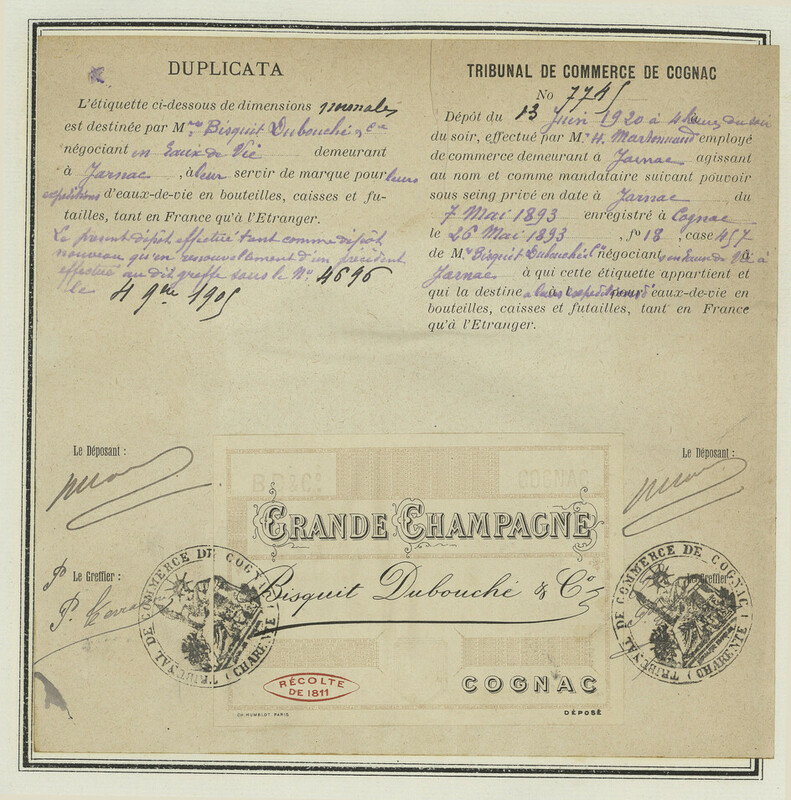 DUPLICATA
L'étiquette ci-dessous de dimensions normales
est destinée par Mrs Bisquit Dubouché & Cie
négociant en Eaux de Vie demeurant
à Jarnac, à leur servir de marque pour leurs
expéditions d'eaux-de-vie en bouteilles, caisses et fu-
tailles, tant en France qu'à l'Etranger.
Le présent dépôt effectué tant comme dépôt
nouveau qu'en renouvellement d'un précédent
effectué au dit greffe sous le No. 4696
le 4 9bre 1905
TRIBUNAL DE COMMERCE DE COGNAC
No 7745
Dépôt du 13 Juin 1920 à 4 heures du soir
du soir, effectué par M. H. employé
de commerce demeurant à Jarnac agissant
au nom et comme mandataire suivant pouvoir
sous seing privé en date à Jarnac du
7 Mai 1893 enregistré à Cognac
le 26 Mai 1893, fo 18, case 457
de Mrs Bisquit Dubouché négociants en eaux de Vie à
Jarnac à qui cette étiquette appartient et
qui la destine à leurs expéditions d'eaux-de-vie en
bouteilles, caisses et futailles, tant en France
qu'à l'Etranger.
Le Déposant :
Le Déposant :
Le Greffier :
P.
Le Greffier :
TRIBUNAL DE COMMERCE DE COGNAC (CHARENTE)
TRIBUNAL DE COMMERCE DE COGNAC (CHARENTE)
B D & Co
COGNAC
GRANDE CHAMPAGNE
Bisquit Dubouché & Co
RÉCOLTE
DE 1811
COGNAC
CH. HUMBLOT PARIS
DÉPOSÉ